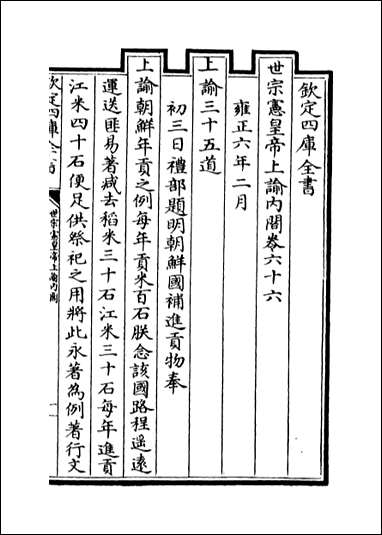 欽定四庫全書
世宗憲皇帝上諭內閣卷六十六
雍正六年二月
上諭三十五道
初三日禮部題明朝鮮國補進貢物奉
上諭朝鮮年貢之例每年貢米百石朕念該國路程遥遠
運送匪易著减去稻米三十石江米三十石每年進貢
江米四十石便足供祭祀之用將此永著為例著行文
欽定四庫全書
世宗憲皇帝上諭內閣